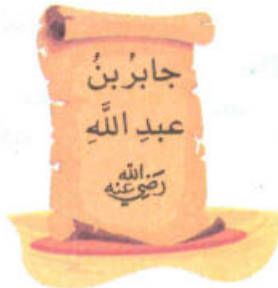 جابرُ بنُ
عبدِ اللَّهِ
رَضِيَ اللَّهُ عَنْهُ